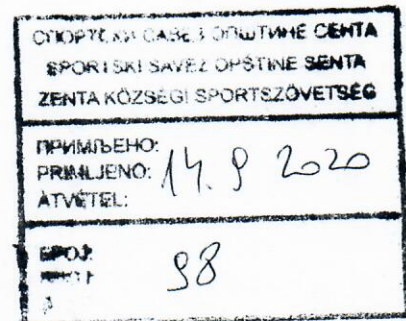 СПОРТСКИ САВЕЗ ОПШТИНЕ СЕНТА
SPORTSKI SAVEZ OPŠTINE SENTA
ZENTA KÖZSÉGI SPORTSZÖVETSÉG
ПРИМЉЕНО:
PRIMLJENO: 14. 9 2020
ÁTVÉTEL:
БРОЈ:
98